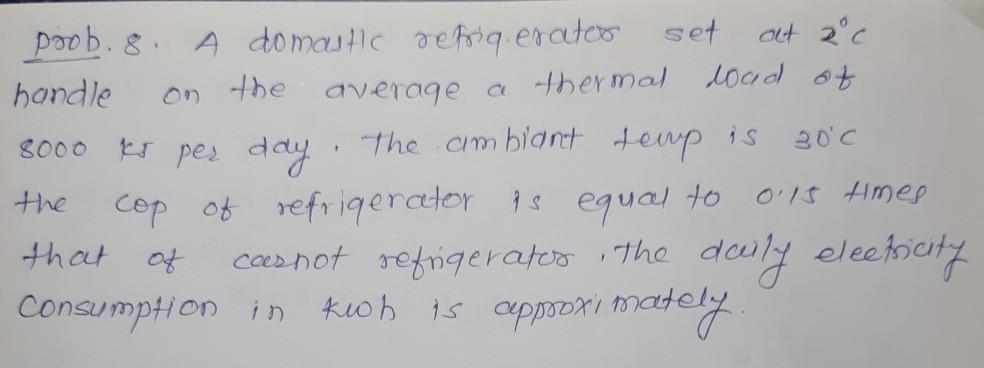 prob. 8. A domastic refrigerator set at 2°c
handle on the average a thermal load of
8000 KJ per day. The ambiant temp is 30°c
the cop of refrigerator is equal to 0.15 times
that of carnot refrigerator, the daily electricity
consumption in kwh is approximately.